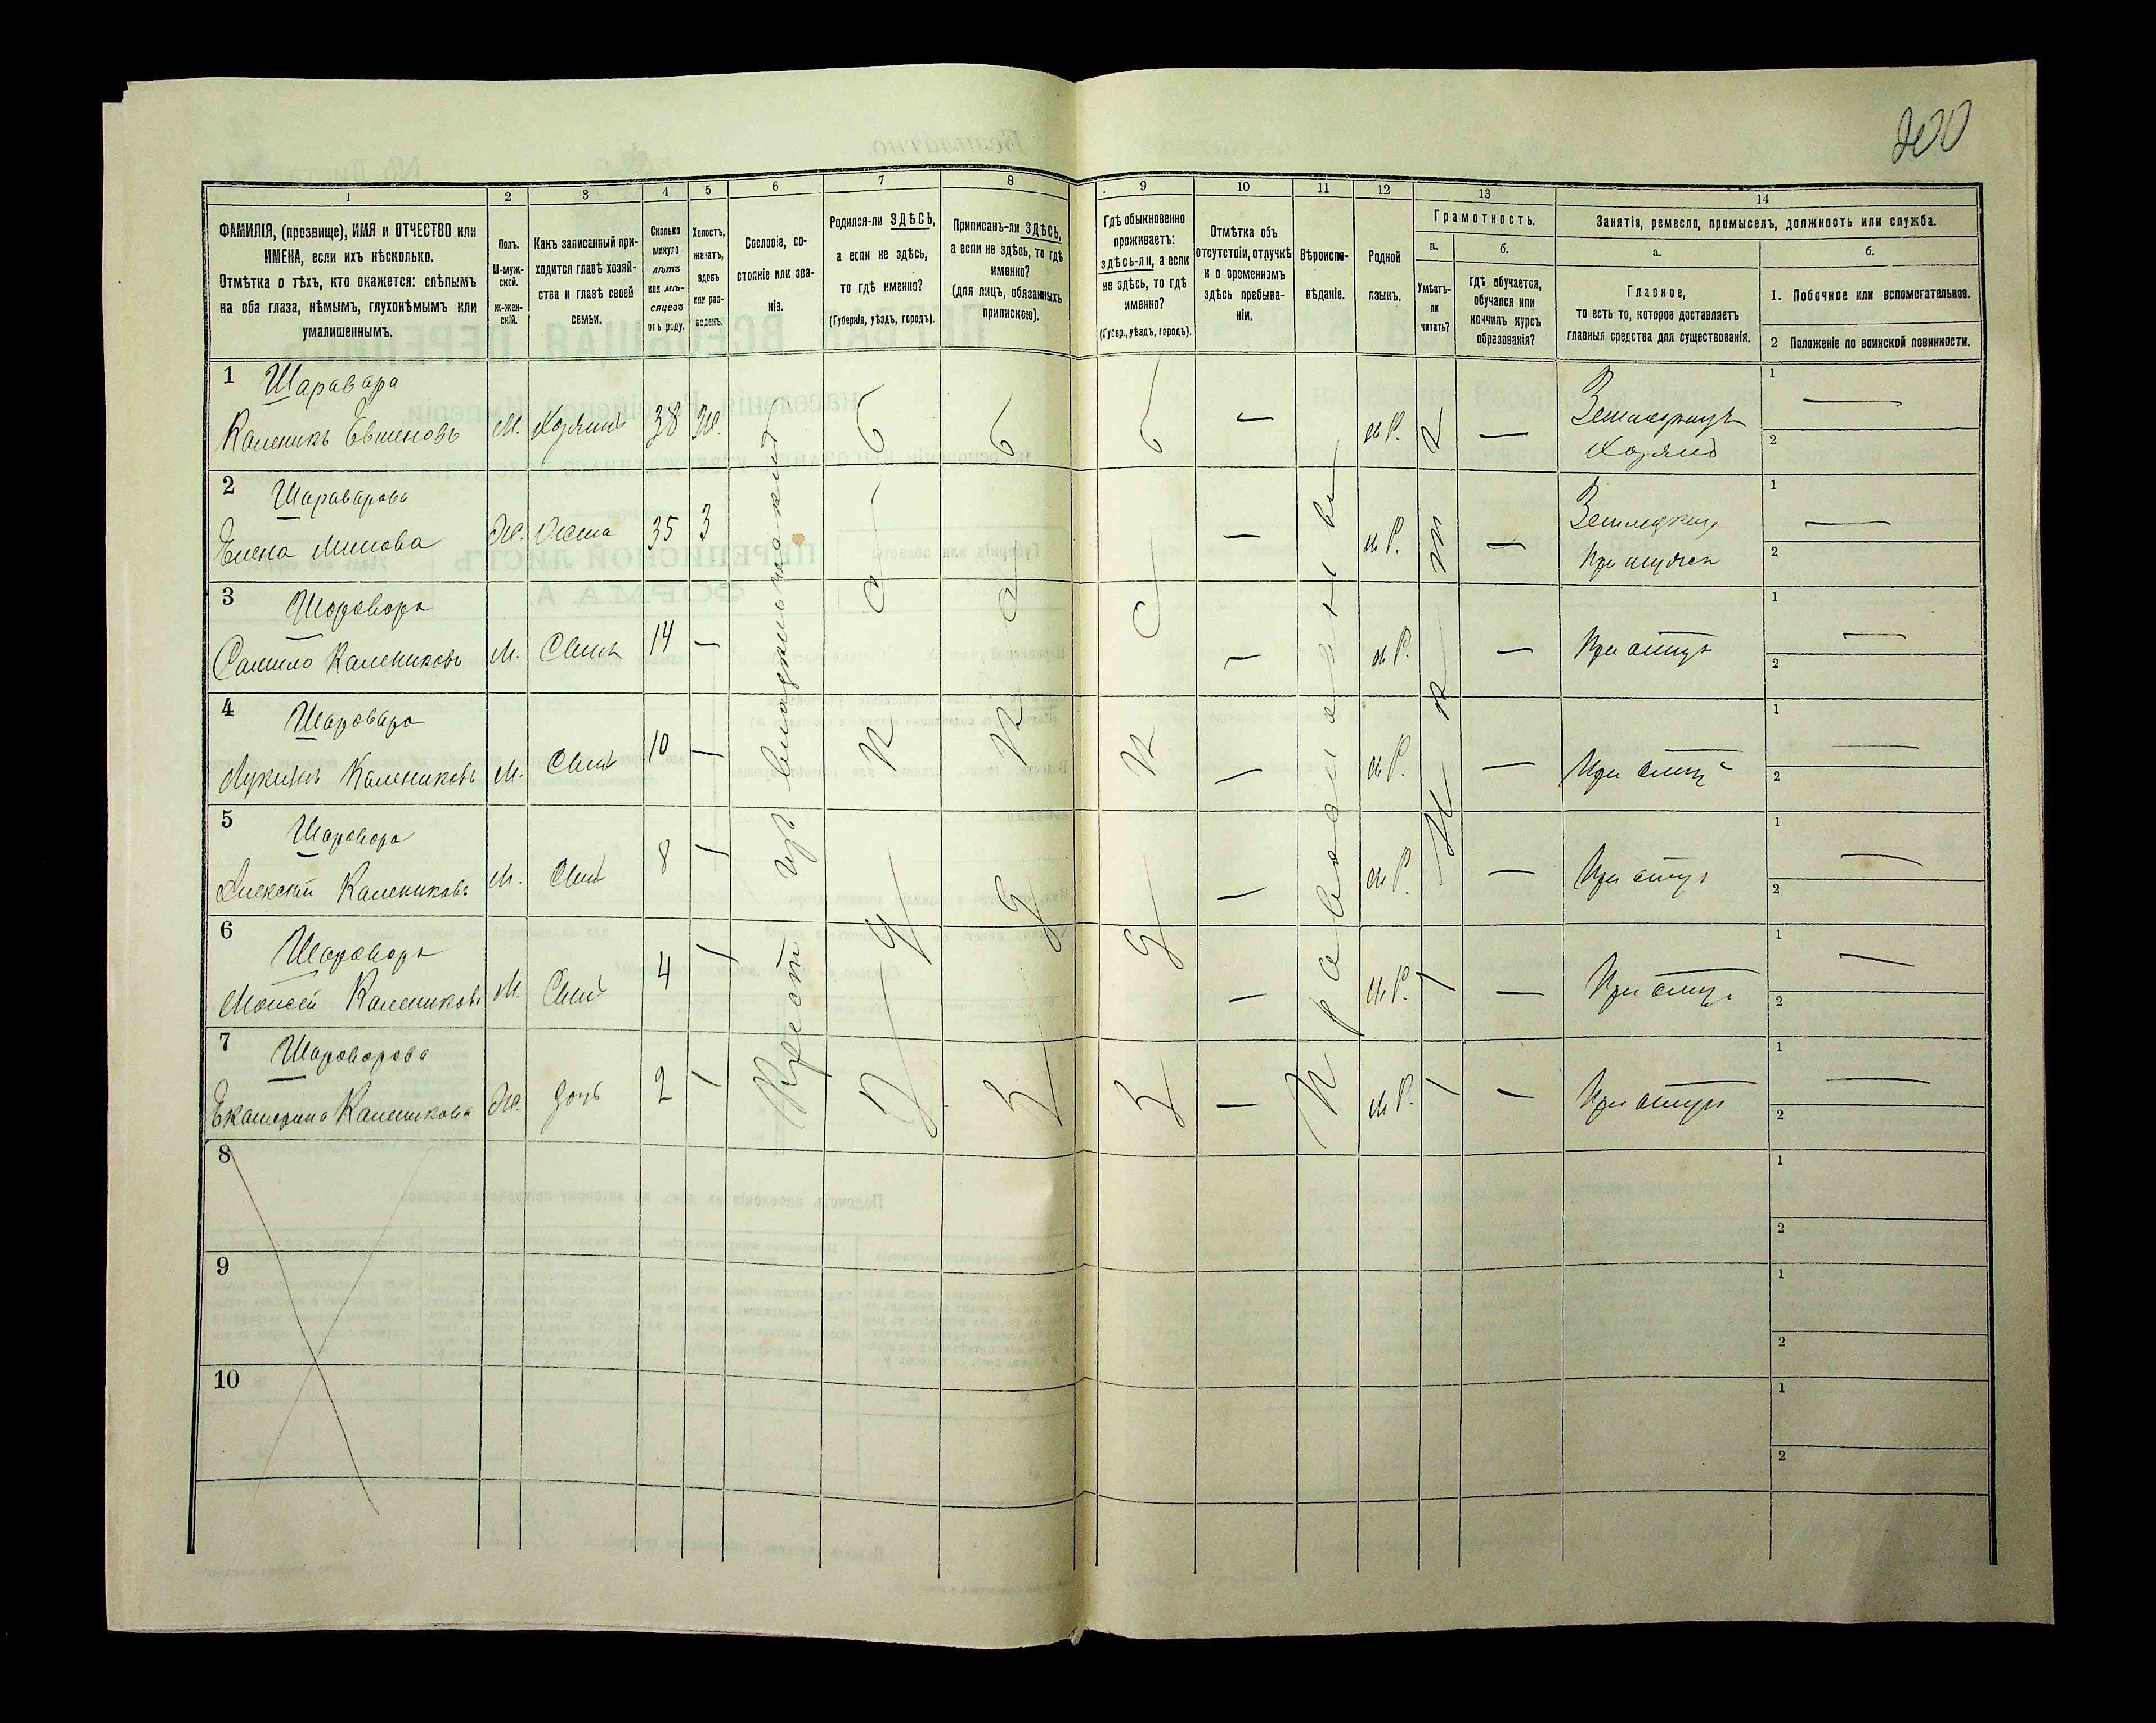 200
1
2
3
4
5
6
7
8
9
10
11
12
13
14
ФАМИЛІЯ, (прозвище), ИМЯ и ОТЧЕСТВО или
ИМЕНА, если ихъ нѣсколько.
Отмѣтка о тѣхъ, кто окажется: слѣпымъ
на оба глаза, нѣмымъ, глухонѣмымъ или
умалишеннымъ.
Полъ.
М-муж-
ской.
Ж-жен-
скій.
Какъ записанный при-
ходится главѣ хозяй-
ства и главѣ своей
семьи.
Сколько
минуло
лѣтъ
или мѣ-
сяцевъ
отъ роду.
Холостъ,
женатъ,
вдовъ
или раз-
веденъ.
Сословіе, со-
стояніе или зва-
ніе.
Родился-ли ЗДѢСЬ,
а если не здѣсь,
то гдѣ именно?
(Губернія, уѣздъ, городъ).
Приписанъ-ли ЗДѢСЬ,
а если не здѣсь, то гдѣ
именно?
(для лицъ, обязанныхъ
припискою).
Гдѣ обыкновенно
проживаетъ:
здѣсь-ли, а если
не здѣсь, то гдѣ
именно?
(Губер., уѣздъ, городъ).
Отмѣтка объ
отсутствіи, отлучкѣ
и о временномъ
здѣсь пребыва-
ніи.
Вѣроиспо-
вѣданіе.
Родной
языкъ.
Грамотность.
а.
Умѣетъ-
ли
читать?
б.
Гдѣ обучается,
обучался или
кончилъ курсъ
образованія?
Занятія, ремесло, промыселъ, должность или служба.
а.
Главное,
то есть то, которое доставляетъ
главныя средства для существованія.
б.
1. Побочное или вспомогательное.
2 Положеніе по воинской повинности.
1 Шаравара
Каленикъ Евтеновъ М. Хозяинъ 38 Ж. — м Р. — Земледѣлецъ
Хозяинъ
1 —
2
2 Шараварова
Елена Минова Ж. Жена 35 З — м Р. —
При мужѣ
1 —
2
3 Шаровара
Самило Калениковъ М. Сынъ 14 — — м Р. — При отцѣ
1 —
2
4 Шаровара
Лукянъ Калениковъ М. Сынъ 10 — — м Р. — При отцѣ
1 —
2
5 Шаровара
Алексѣй Калениковъ М. Сынъ 8 — — м Р. — При отцѣ
1 —
2
6 Шаровара
Моисей Калениковъ М. Сынъ 4 — — м Р. — — При отцѣ
1 —
2
7 Шароварова
Екатерина Каленикова Ж. дочь 2 — — м Р. — — При отцѣ
1 —
2
Крест изъ владѣльческихъ
Здѣсь
Здѣсь
Здѣсь
Православный
Нѣтъ
8
1
2
9
1
2
10
1
2